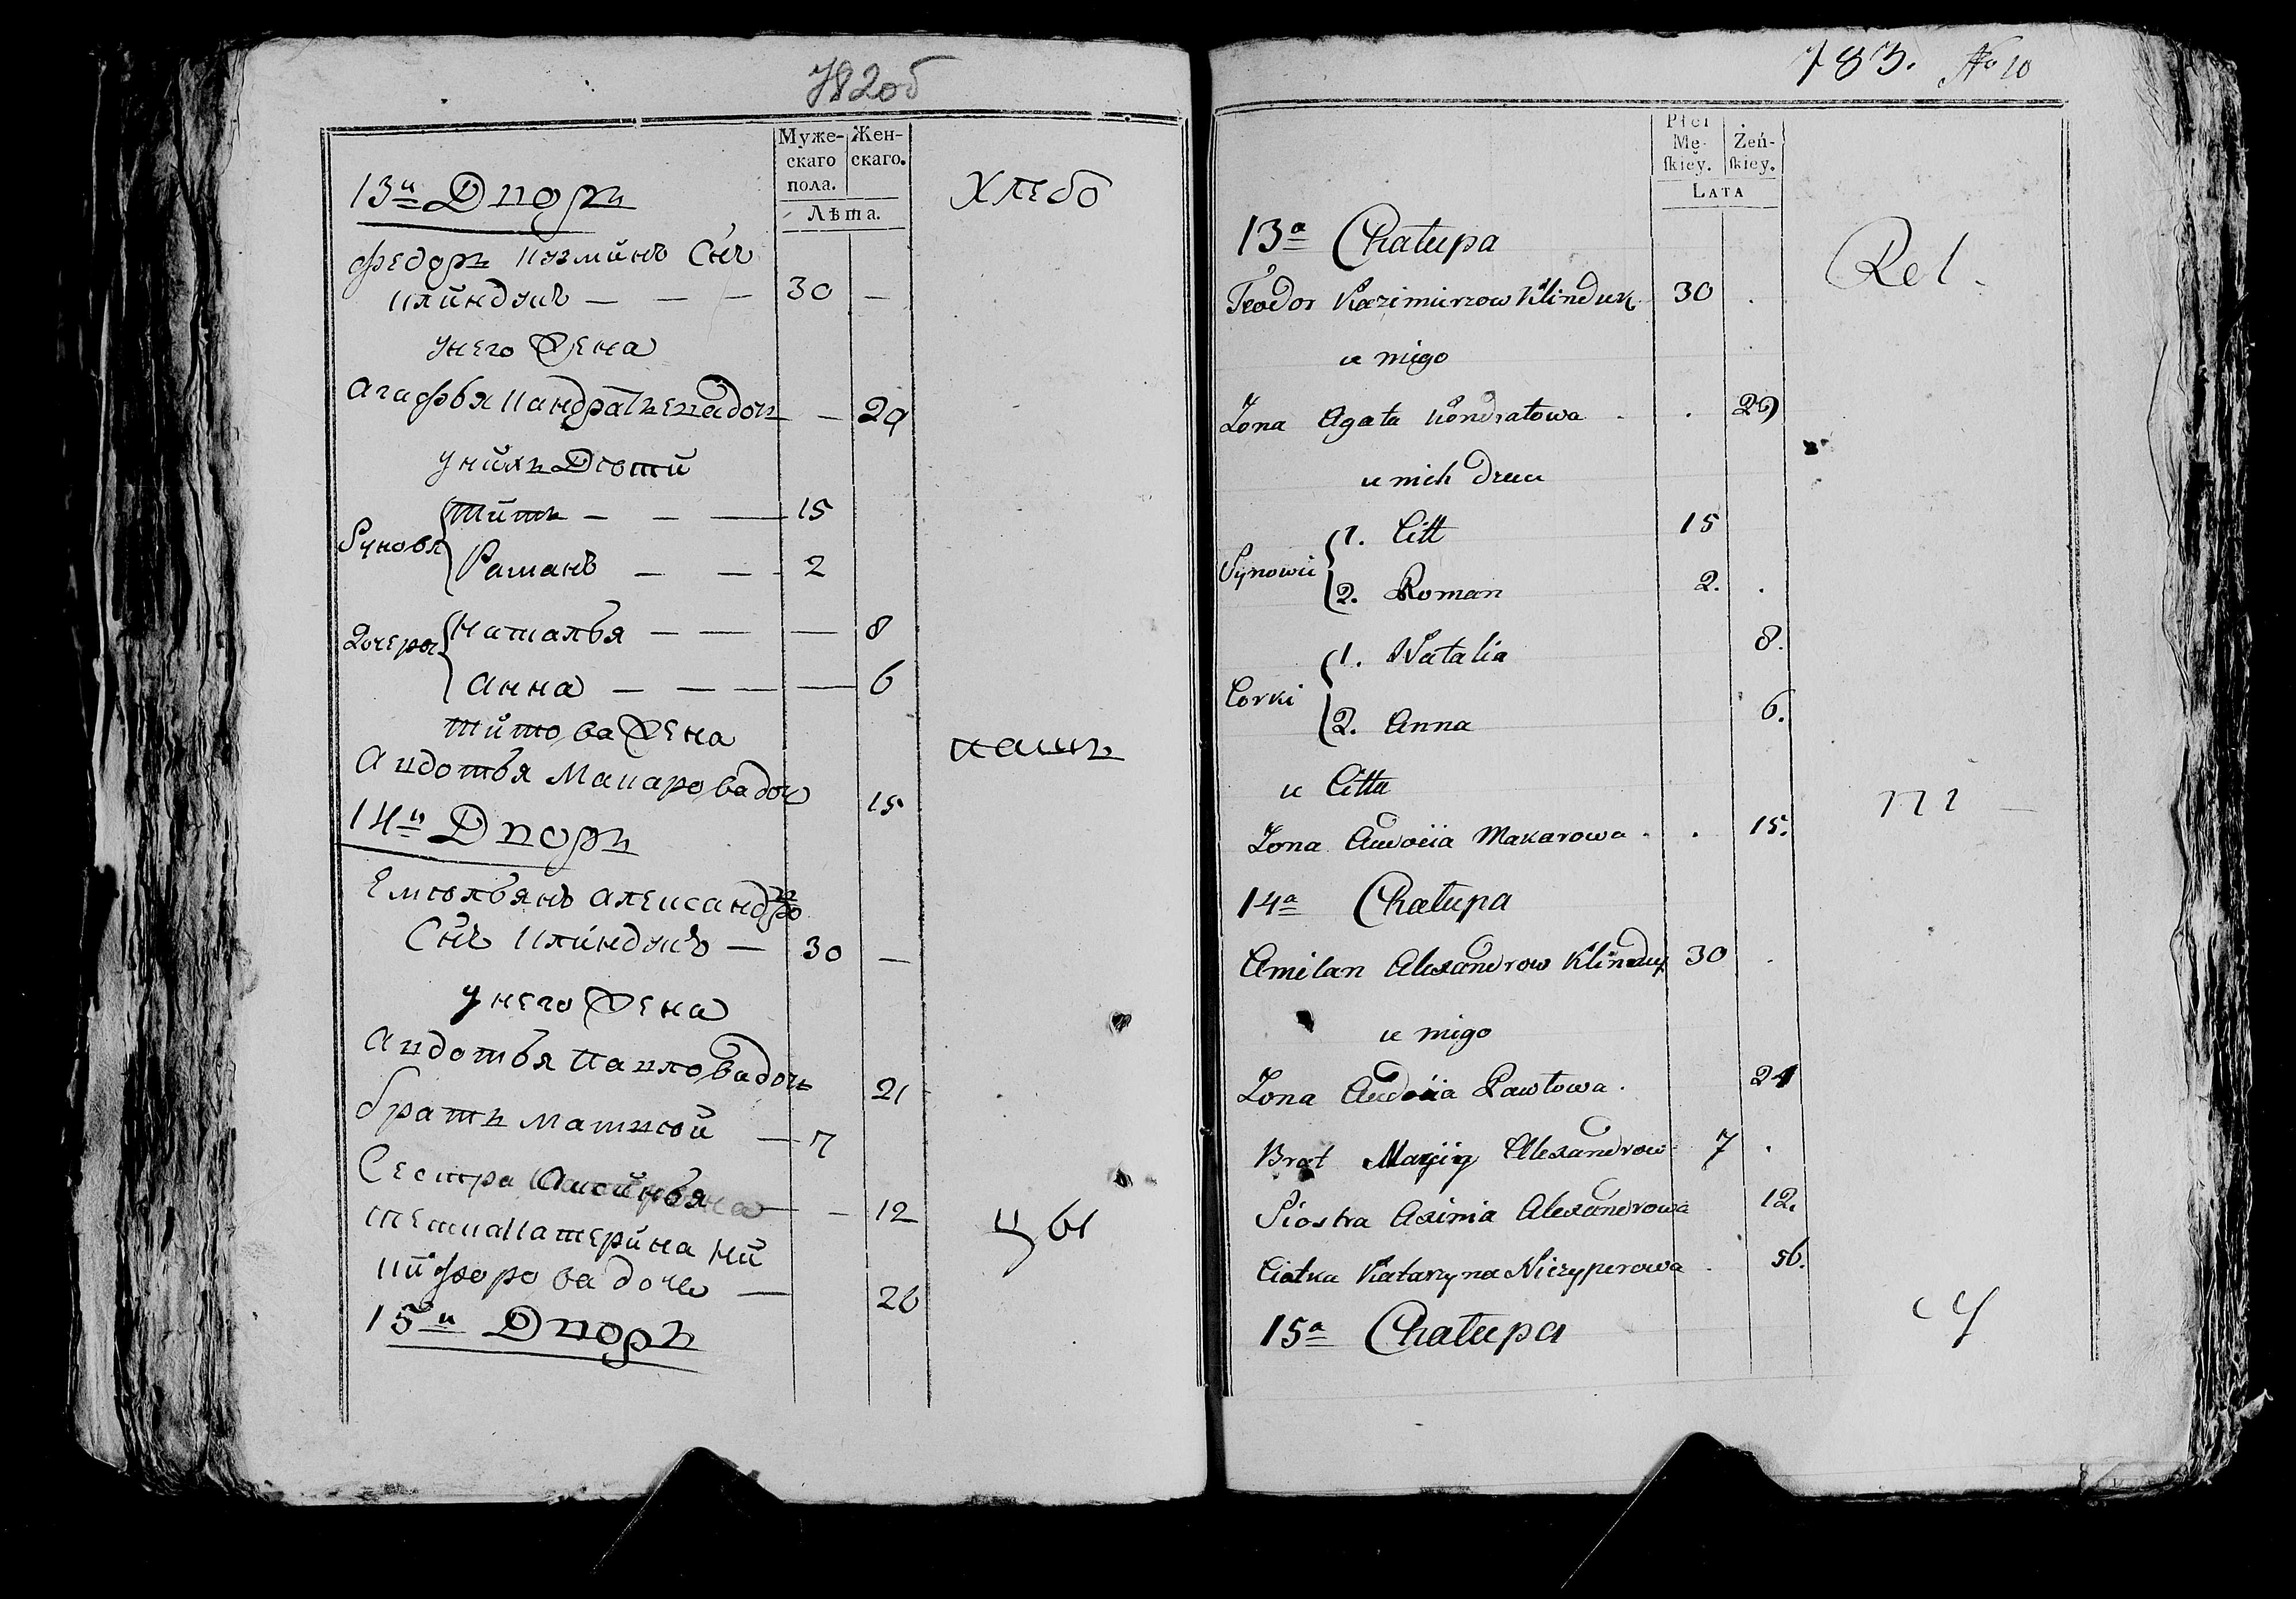 782об
Муже-
скаго
пола.
Жен-
скаго.
Лѣта.
13й Дворъ
Хлебо
Федоръ Кузминъ Снъ
Клиндукъ — — — 30 —
унего Жена
Агафья Кандратьевадоч — 29
унихъ Дѣти
Сыновя
Титъ — — — 15
Раманъ — — 2
Дочеры
Наталья — — — 8
Анна — — — — 6
Титова Жена
пашъ
Авдотья Макаровадоч 15
14й Дворъ
Емельянъ Александро
Снъ Клиндукъ — 30 —
унего Жена
Авдотья Павловадочь 21
братъ Матвѣй — 7
Сестра Аксинья — — 12
цы
тетка Катерина Ни
кифорова дочь — 26
15й Дворъ
783. No 10
Płci
Mę-
skiey.
Żeń-
skiey.
LATA
13a Chałupa
Rol.
Teodor Kazimierzow Klinduk 30 .
u niego
Zona Agata Kondratowa . . 29
u nich dzieci
Synowie
1. Citt 15
2. Roman 2. .
Corki
1. Natalia 8.
2. Anna 6.
u Citta
ni —
Zona Awdocia Makarowa . . 15.
14a Chałupa
Amilan Alexandrow Klinduk 30 .
u niego
Zona Awdocia Pawłowa . 21
Brat Alexandrow 7 .
Siostra Axinia Alexandrowa 12.
Ciotka Katarzyna Niczyperowa . 56.
cy
15a Chałupa